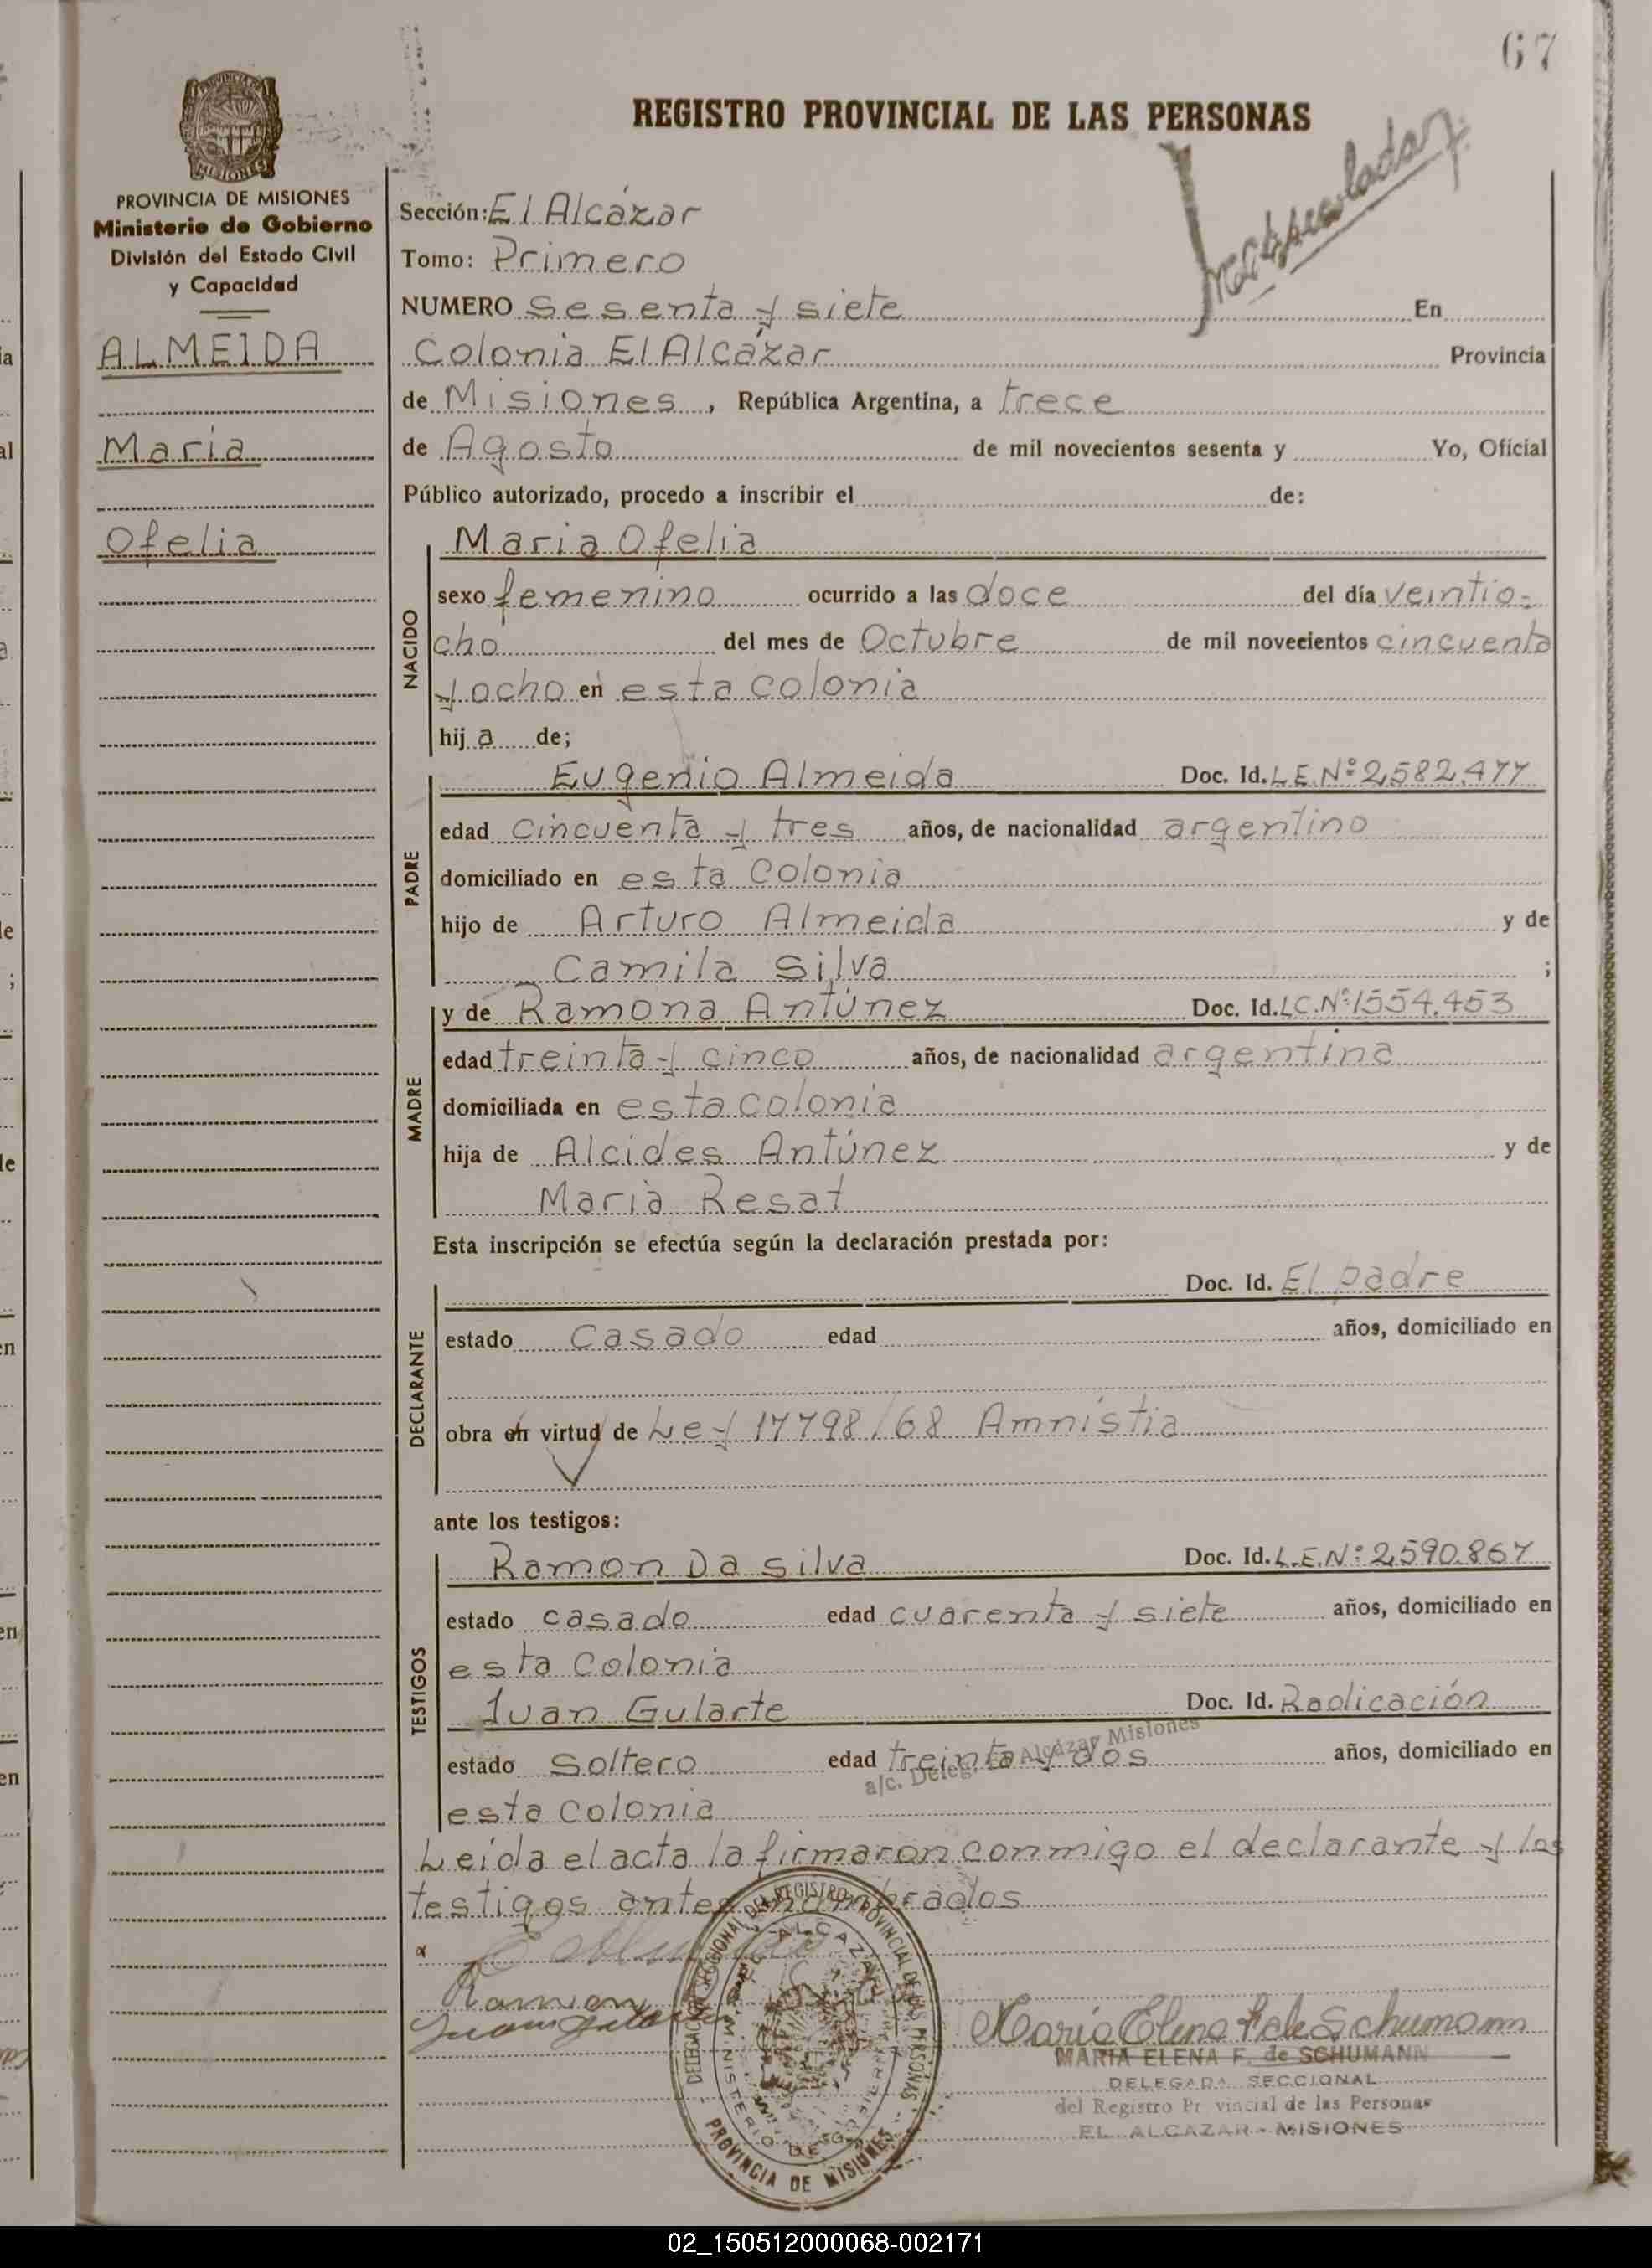 67
REGISTRO PROVINCIAL DE LAS PERSONAS
PROVINCIA DE MISIONES
Ministerio de Gobierno
División del Estado Civil
y Capacidad
ALMEIDA
Maria
Ofelia
Matriculada
Sección: El Alcázar
Tomo: Primero
NUMERO Sesenta y siete En
Colonia El Alcázar Provincia
de Misiones, República Argentina, a trece
de Agosto de mil novecientos sesenta y Yo, Oficial
Público autorizado, procedo a inscribir el de:
NACIDO
Maria Ofelia
sexo femenino ocurrido a las doce del día veintio-
cho del mes de Octubre de mil novecientos cincuenta
y ocho en esta colonia
hija de;
PADRE
Eugenio Almeida Doc. Id. L.E.Nº 2,582.477
edad cincuenta y tres años, de nacionalidad argentino
domiciliado en esta Colonia
hijo de Arturo Almeida y de
Camila Silva ;
MADRE
y de Ramona Antúnez Doc. Id. L.C.Nº 1554.453
edad treinta y cinco años, de nacionalidad argentina
domiciliada en esta colonia
hija de Alcides Antúnez y de
Maria Resat
Esta inscripción se efectúa según la declaración prestada por:
DECLARANTE
Doc. Id. El padre
estado Casado edad años, domiciliado en
obra en virtud de Ley 17798/68 Amnistia
ante los testigos:
TESTIGOS
Ramon Da Silva Doc. Id. L.E.Nº 2,590.867
estado casado edad cuarenta y siete años, domiciliado en
esta Colonia
Juan Gularte Doc. Id. Radicación
estado Soltero edad treinta y dos años, domiciliado en
a/c. Deleg. El Alcázar Misiones
esta Colonia
Leída el acta la firmaron conmigo el declarante y los
testigos antes nombrados
Ramon
Juan Gularte
DELEGACION REGIONAL DEL REGISTRO PROVINCIAL DE LAS PERSONAS
ALCAZAR
MINISTERIO DE GO
PROVINCIA DE MISIONES
Maria Elena F de Schumann
MARIA ELENA F. de SCHUMANN
DELEGADA SECCIONAL
del Registro Pr vincial de las Personas
EL ALCAZAR - MISIONES
02_150512000068-002171